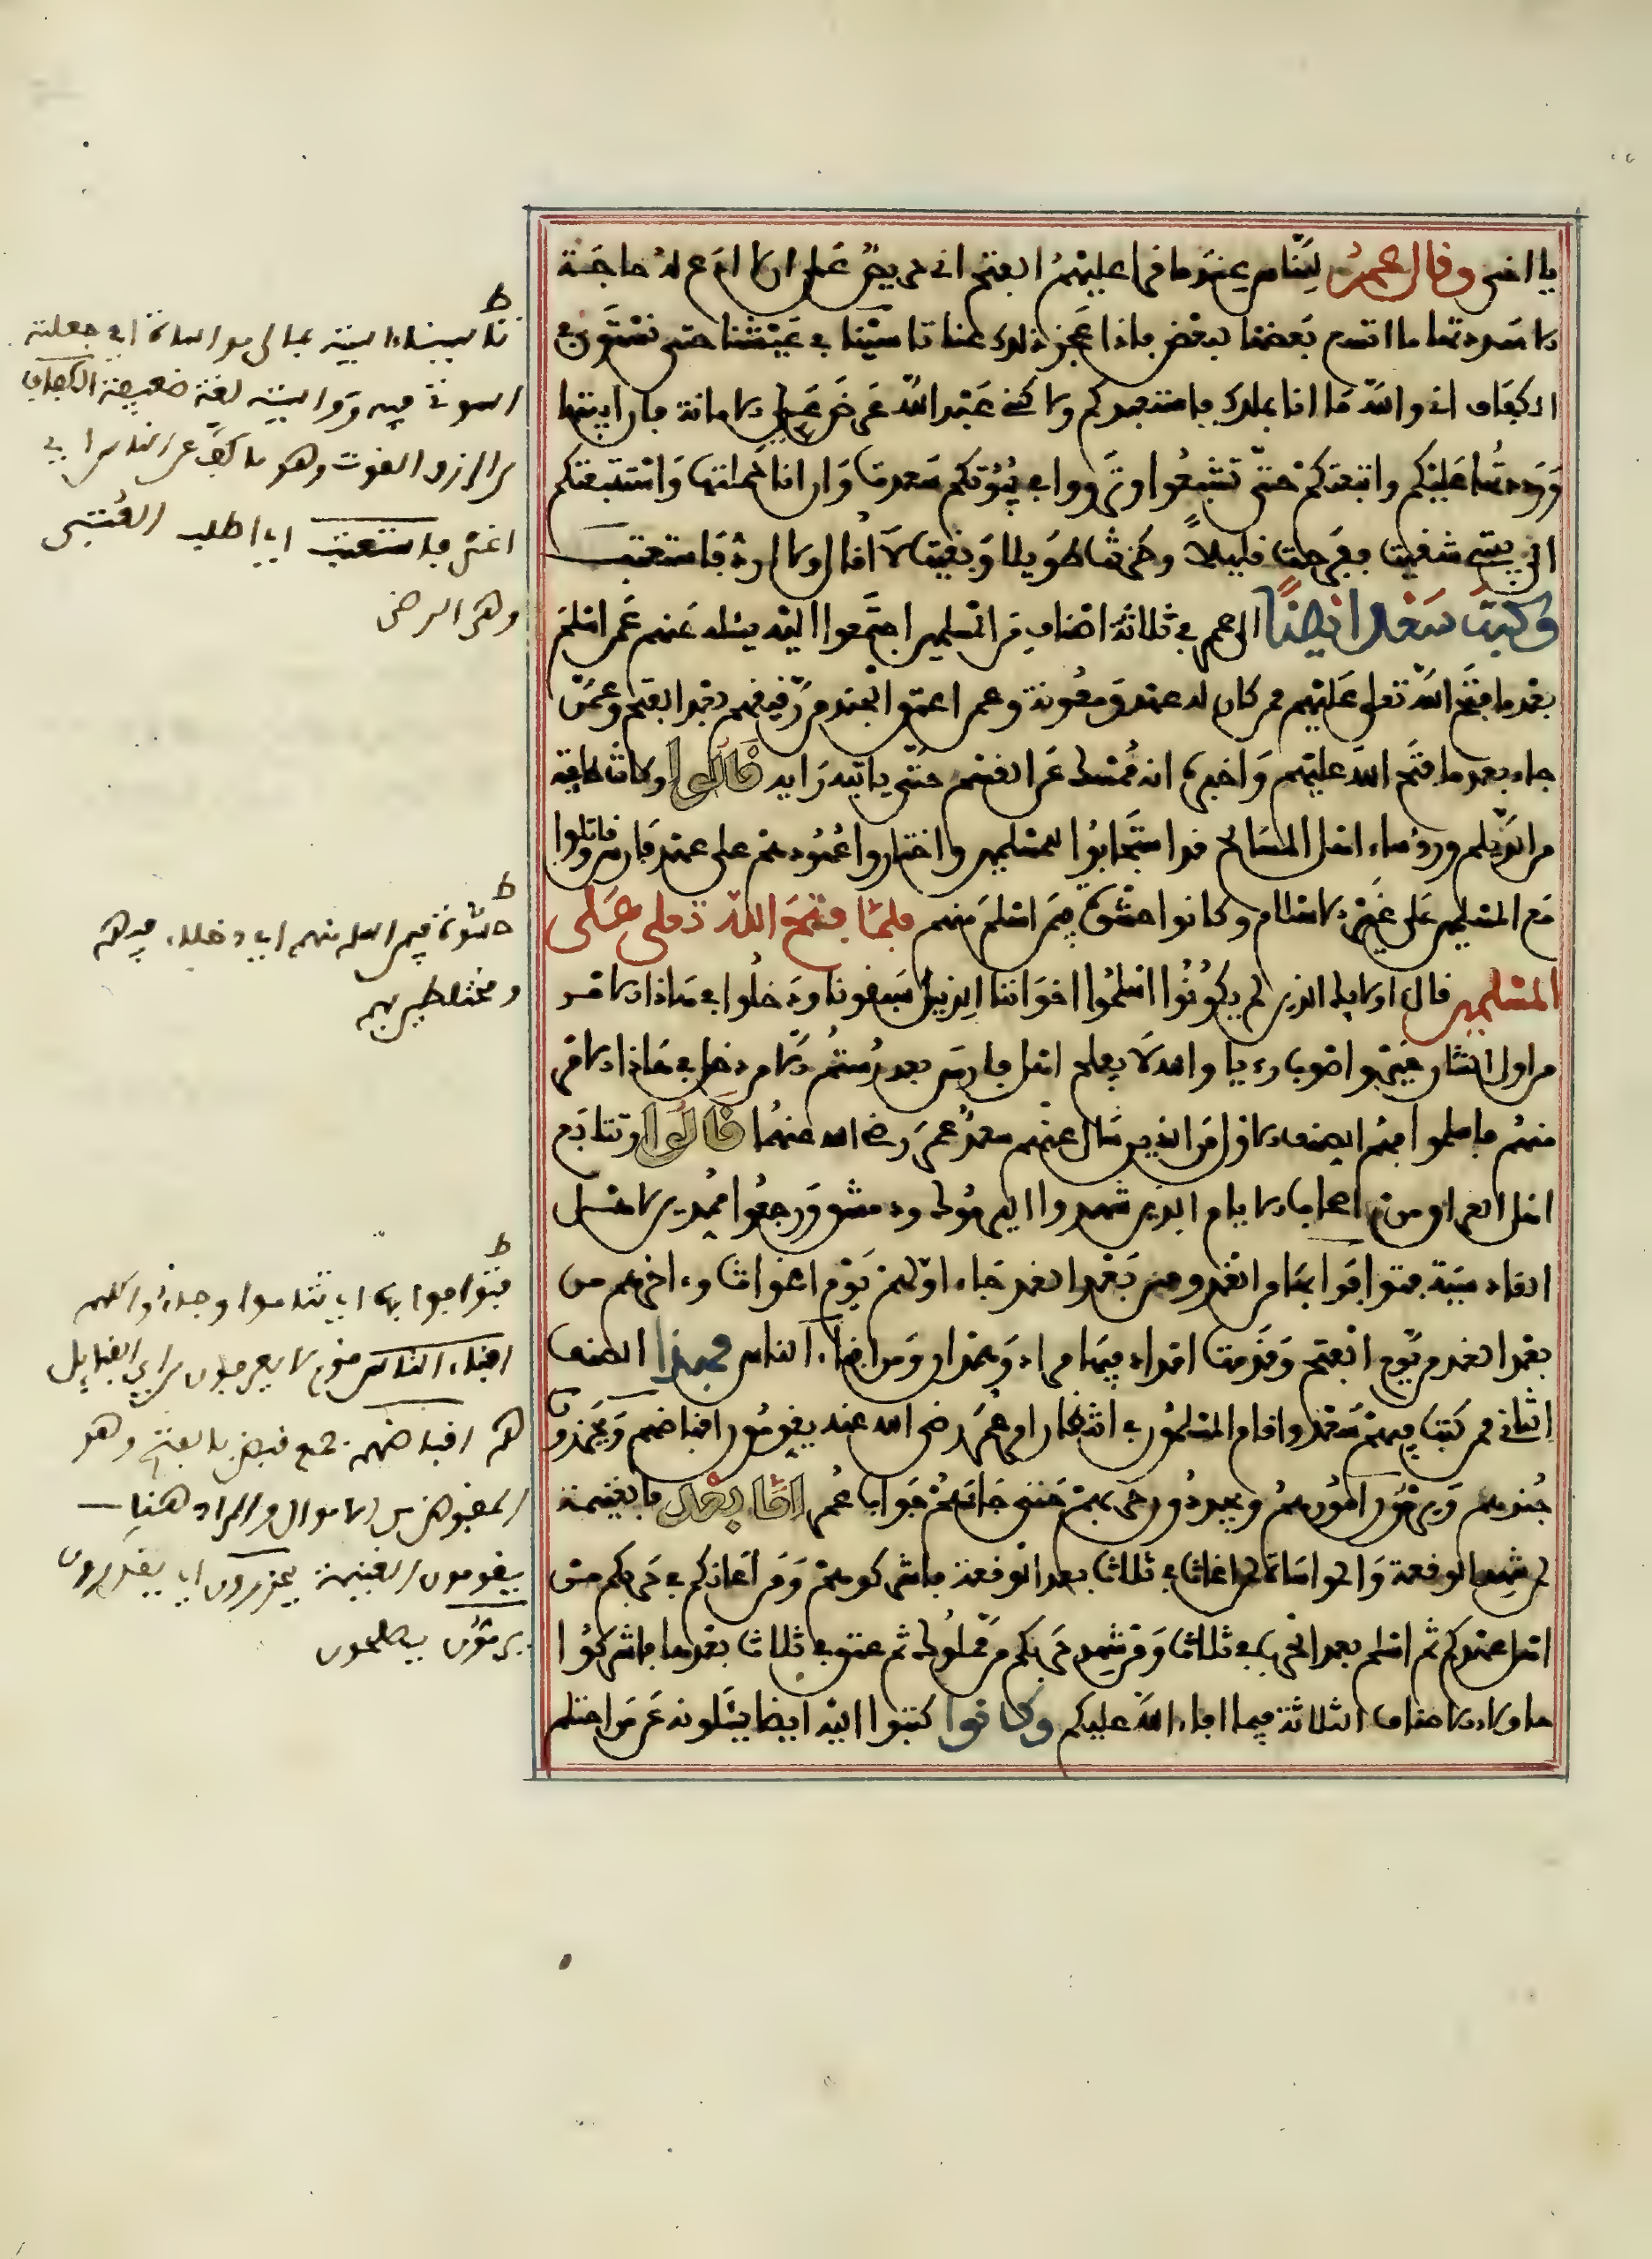 يا اخي وقال عمر للناس عندما قرا عليهم الفتح اني حريص على ان لا ادع لله حاجة
الا سددتها ما اتسع بعضنا لبعض فاذا عجز ذلك عنا تاسينا في عيشنا حتى نستوي في
الكفاف اني والله ما انا بملك فاستعبدكم ولاكني عبد الله عرض علي الامانة فان ابيتها
ورددتها عليكم واتبعتكم حتى تشبعوا وترووا في بيوتكم سعدت وان انا حملتها واستتبعتكم
الى بيتي شقيت ففرحت قليلا وحزنت طويلا وبقيت لا اقال ولا ارد فاستعتب
وكتب سعد ايضا الى عمر في ثلاثة اصناف من المسلمين اجتمعوا اليه يسئله عنهم عمن اسلم
بعدما فتح الله تعلى عليهم ممن كان له عهد ومعونة وعمن اعتق الجند من رقيقهم بعد الفتح وعمن
جاء بعدما فتح الله عليهم واخبره انه ممسك عن القسم حتى ياتيه رايه قالوا وكانت طايفة
من الديلم ورؤساء اهل المسالح قد استجابوا للمسلمين واختاروا عهودهم على عهد فارس وقاتلوا
مع المسلمين على غير الاسلام وكانوا حشوة فيمن اسلم منهم فلما فتح الله تعلى على
المسلمين قال اولايك الذين لم يكونوا اسلموا اخواننا الذين سبقونا ودخلوا في هاذا الامر
من اول الشان خير واصوب رءيا والله لا يفلح اهل فارس بعد رستم الا من دخل في هاذا الامر
منهم فاسلموا فهم الصنف الاول من الذين سال عنهم سعد عمر رضي الله عنهما قالوا وتتابع
اهل العراق من اصحاب الايام الذين شهدوا اليرموك ودمشق ورجعوا ممدين لاهل
القادسية فتوافوا بها من الغد ومن بعد الغد جاء اولهم يوم اغواث وءاخرهم من
بعد الغد من يوم الفتح وقدمت امداد فيها مراد وهمدان ومن افناء الناس فهذا الصنف
الثاني ممن كتب فيهم سعد واقام المسلمون في انتظار امر عمر رضي الله عنه يقومون اقباضهم ويحزرون
جندهم ويرمون امورهم ويجددون حربهم حتى جاءهم جواب عمر اما بعد فالغنيمة
لمن شهد الوقعة والمواساة لمن اغاث في ثلاث بعد الوقعة فاشركوهم ومن اعانكم في حربكم من
اهل عهدكم ثم اسلم بعد الحرب في ثلاث ومن شهد حربكم من مملوك ثم عتق في ثلاث بعدها فاشركوا
هاولاء الاصناف الثلاثة فيما افاء الله عليكم وكانوا كتبوا اليه ايضا يسئلونه عمن احتلم
ط
تاسينا ءاسيته بمالي مواساة اي جعلته
اسوتي فيه وواسيته لغة ضعيفة الكفاف
من الرزق القوت وهو ما كف عن الناس اي
اغنى فاستعتب اي اطلب العتبى
وهي الرضى
ط
حشوة فيمن اسلم منهم اي دخلاء فيهم
ومختلطين بهم
ط
فتوافوا بها اي تتاموا وجاءوا كلهم
افناء الناس قوم لا يعرفون من اي القبايل
هم اقباضهم جمع قبض بالفتح وهو
المقبوض من الاموال والمراد هنا
يقومون الغنيمة يحزرون اي يقدرون
يرمون يصلحون